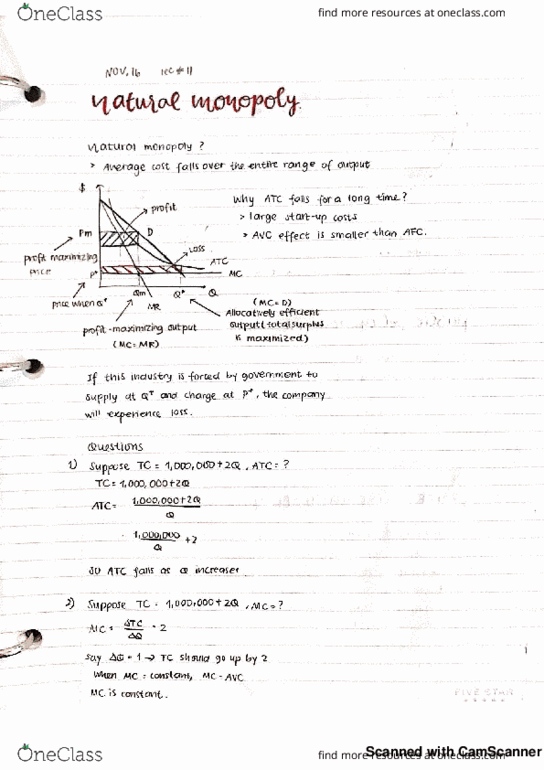 OneClass
find more resources at oneclass.com
NOV. 16 lec # 11
natural monopoly.
Natural monopoly?
> Average cost falls over the entire range of output
$
profit
Why ATC falls for a long time?
> large start-up costs
Pm
D
> AVC effect is smaller than AFC.
loss
profit maximizing
price
ATC
P*
MC
Qm
Q*
Q
price when Q*
MR
(MC=D)
Allocatively efficient
output (total surplus
is maximized)
profit-maximizing output
(MC=MR)
If this industry is forced by government to
supply at Q* and charge at P*, the company
will experience loss.
Questions
1) Suppose TC = 1,000,000+2Q, ATC = ?
TC = 1,000,000+2Q
ATC = 1,000,000+2Q
Q
= 1,000,000 + 2
Q
so ATC falls as Q increases
2) Suppose TC = 1,000,000+2Q, MC = ?
MC = ΔTC = 2
ΔQ
say ΔQ = 1 → TC should go up by 2
When MC = constant, MC = AVC
MC is constant.
OneClass
find more resources at oneclass.com
Scanned with CamScanner